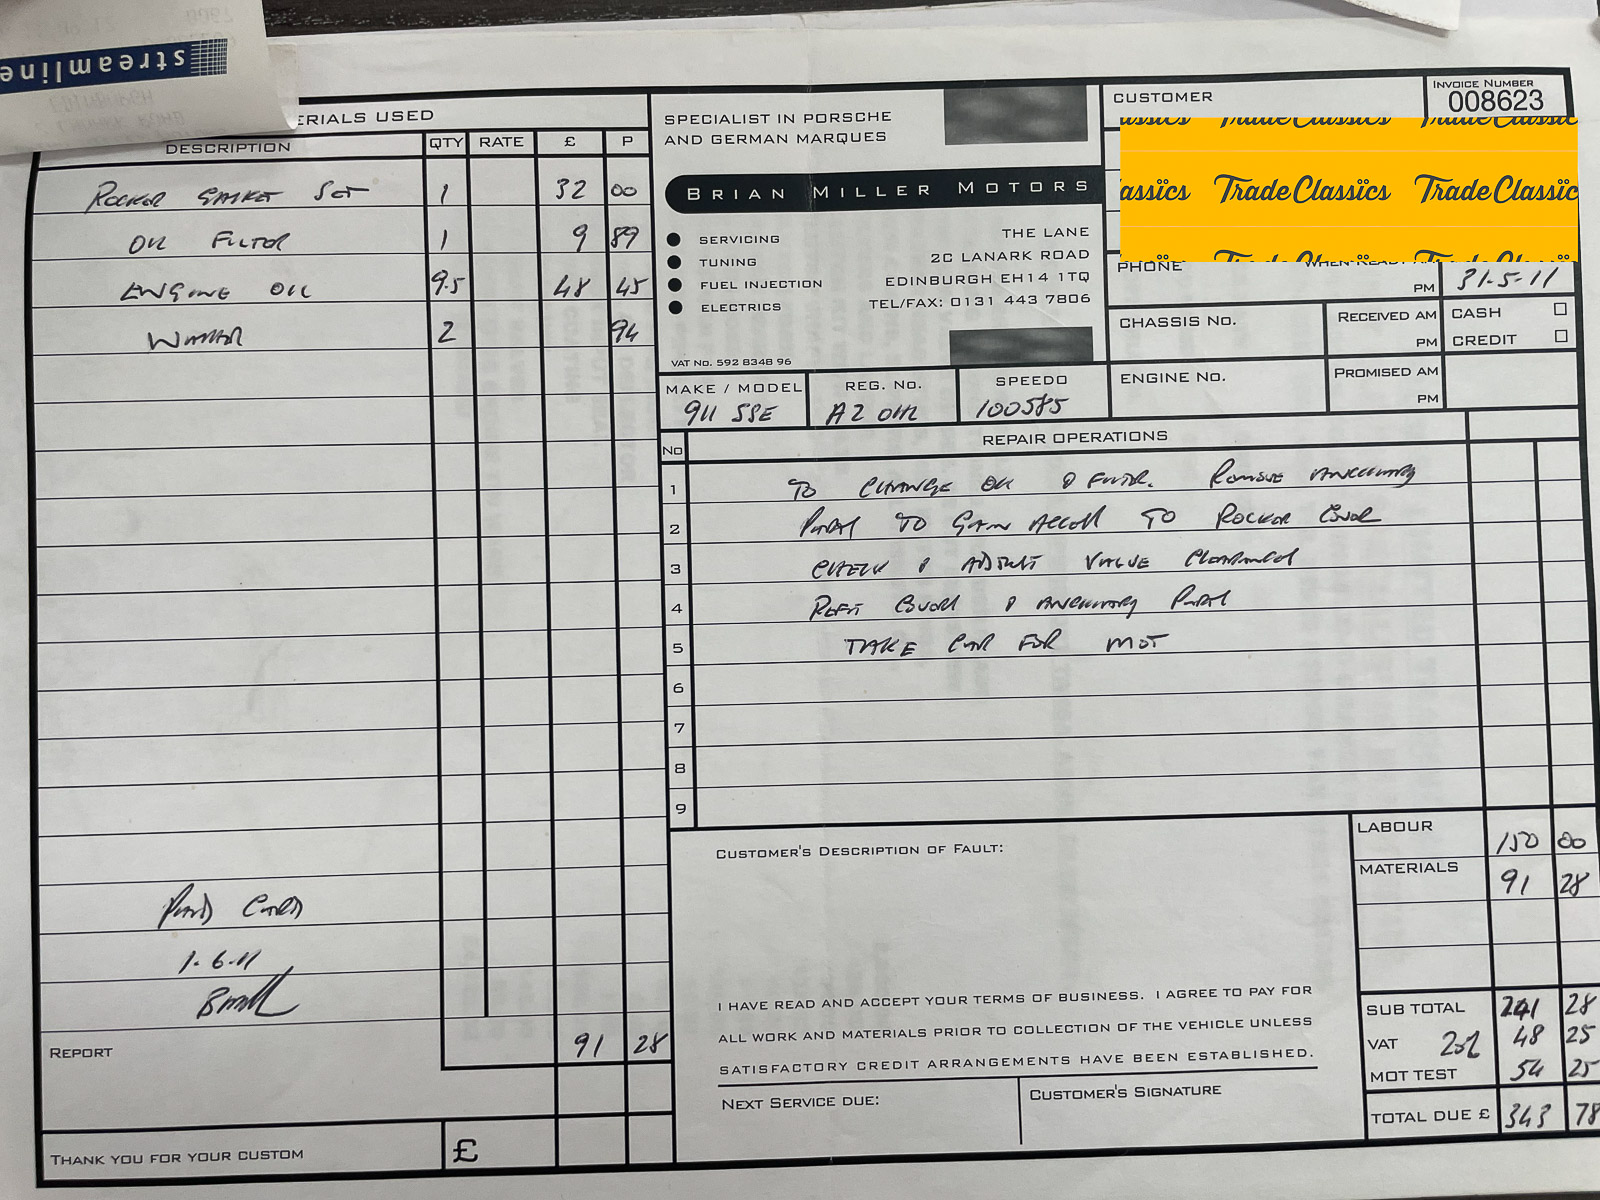 streamline
ERIALS USED
DESCRIPTION QTY RATE £ P
ROCKER GASKET SET 1 32 00
OIL FILTER 1 9 89
ENGINE OIL 9.5 48 45
WASHER 2 94
PAID CARD
1.6.11
REPORT 91 28
THANK YOU FOR YOUR CUSTOM £
SPECIALIST IN PORSCHE
AND GERMAN MARQUES
BRIAN MILLER MOTORS
SERVICING
TUNING
FUEL INJECTION
ELECTRICS
THE LANE
2C LANARK ROAD
EDINBURGH EH14 1TQ
TEL/FAX: 0131 443 7806
VAT NO. 592 8348 96
CUSTOMER
INVOICE NUMBER
008623
assics Trade Classics Trade Classic
assics Trade Classics Trade Classic
assics Trade Classics Trade Classic
PHONE WHEN READY AM
PM 31-5-11
CHASSIS NO. RECEIVED AM CASH
PM CREDIT
MAKE / MODEL REG. NO. SPEEDO ENGINE NO. PROMISED AM
911 SSE A2 OHL 100585 PM
NO REPAIR OPERATIONS
1 TO CHANGE OIL & FILTER. REMOVE ANCILLARY
2 PARTS TO GAIN ACCESS TO ROCKER COVER
3 CHECK & ADJUST VALVE CLEARANCES
4 REFIT COVERS & ANCILLARY PARTS
5 TAKE CAR FOR MOT
6
7
8
9
CUSTOMER'S DESCRIPTION OF FAULT:
I HAVE READ AND ACCEPT YOUR TERMS OF BUSINESS. I AGREE TO PAY FOR
ALL WORK AND MATERIALS PRIOR TO COLLECTION OF THE VEHICLE UNLESS
SATISFACTORY CREDIT ARRANGEMENTS HAVE BEEN ESTABLISHED.
NEXT SERVICE DUE: CUSTOMER'S SIGNATURE
LABOUR 150 00
MATERIALS 91 28
SUB TOTAL 241 28
VAT 20% 48 25
MOT TEST 54 25
TOTAL DUE £ 343 78